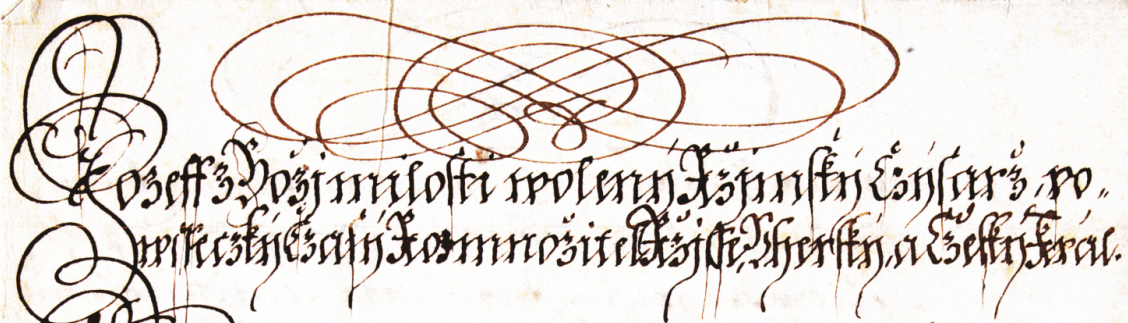 Jozeff z Boží milosti wolený Ržimský Czýsarž, po-
wssleczký Czasý Rozmnožitel Ržisse, Uherský, a Cžeský Král.